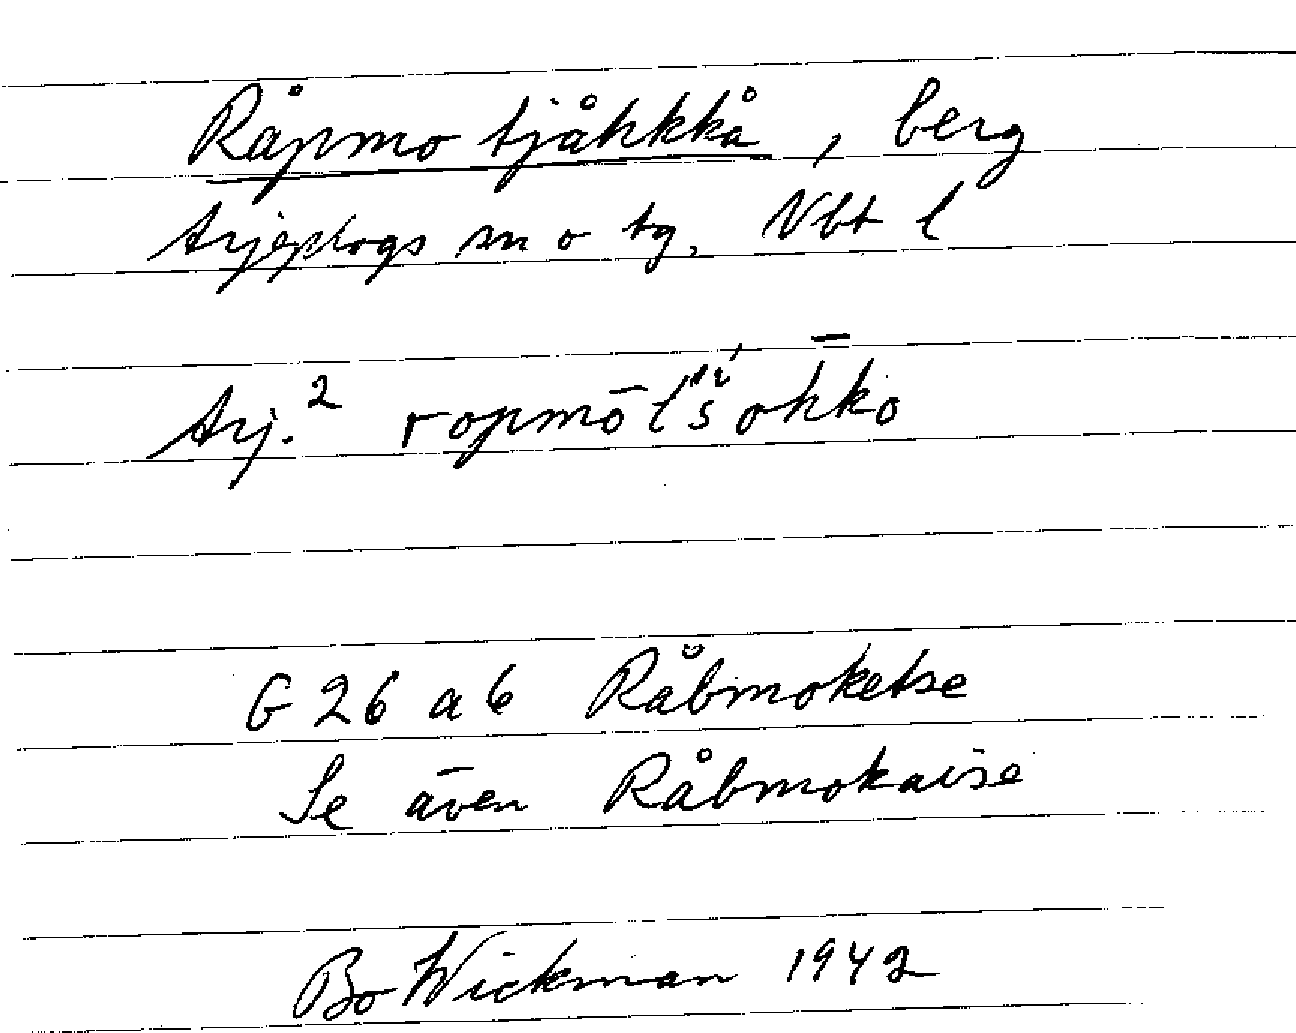 Råpmo tjåhkkå, berg
Arjeplogs sn o tg, Nbt l
Arj.² ropmō t́š́ohk̄o
G 26 a 6 Råbmoketse
Se även Råbmokaise
Bo Wickman 1942